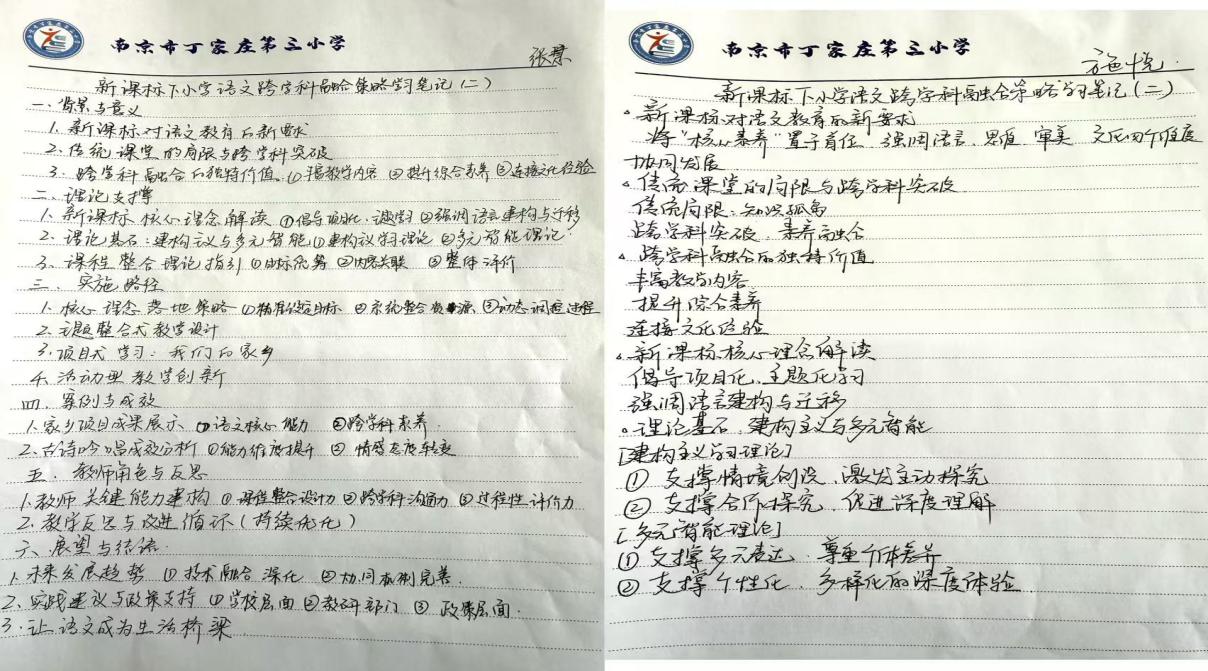 南京市丁家庄第三小学
张慧
新课标下小学语文跨学科融合策略学习笔记(二)
一、背景与意义
1. 新课标对语文教育的新要求
2. 传统课堂的局限与跨学科突破
3. 跨学科融合的独特价值 ①丰富教学内容 ②提升综合素养 ③连接文化经验
二、理论支撑
1. 新课标核心理念解读 ①倡导项目化、主题学习 ②强调语言建构与迁移
2. 理论基石:建构主义与多元智能 ①建构主义学习理论 ②多元智能理论
3. 课程整合理论指引 ①目标统筹 ②内容关联 ③整体评价
三、实施路径
1. 核心理念落地策略 ①精准设定目标 ②系统整合资源 ③动态调控过程
2. 主题整合式教学设计
3. 项目式学习:我们的家乡
4. 活动型教学创新
四、案例与成效
1. 家乡项目成果展示 ①语文核心能力 ②跨学科素养
2. 古诗吟唱成效分析 ①能力维度提升 ② 情感态度转变
五、教师角色与反思
1. 教师关键能力建构 ①课程整合设计力 ②跨学科沟通力 ③过程性评价力
2. 教学反思与改进循环(持续优化)
六、展望与结语
1. 未来发展趋势 ①技术融合深化 ②协同机制完善
2. 实践建议与政策支持 ①学校层面 ②教研部门 ③ 政策层面
3. 让语文成为生活桥梁
南京市丁家庄第三小学
施悦
新课标下小学语文跨学科融合策略学习笔记(二)
。新课标对语文教育的新要求
将“核心素养”置于首位、强调语言、思维、审美、文化四个维度
协同发展
。传统课堂的局限与跨学科突破
传统局限:知识孤岛
跨学科突破:素养融合
。跨学科融合的独特价值
丰富教学内容
提升综合素养
连接文化经验
。新课标核心理念解读
倡导项目化、主题化学习
强调语言建构与迁移
。理论基石:建构主义与多元智能
[建构主义学习理论]
① 支撑情境创设、激发主动探究
② 支撑合作探究、促进深度理解
[多元智能理论]
① 支撑多元表达、尊重个体差异
② 支撑个性化、多样化的深度体验